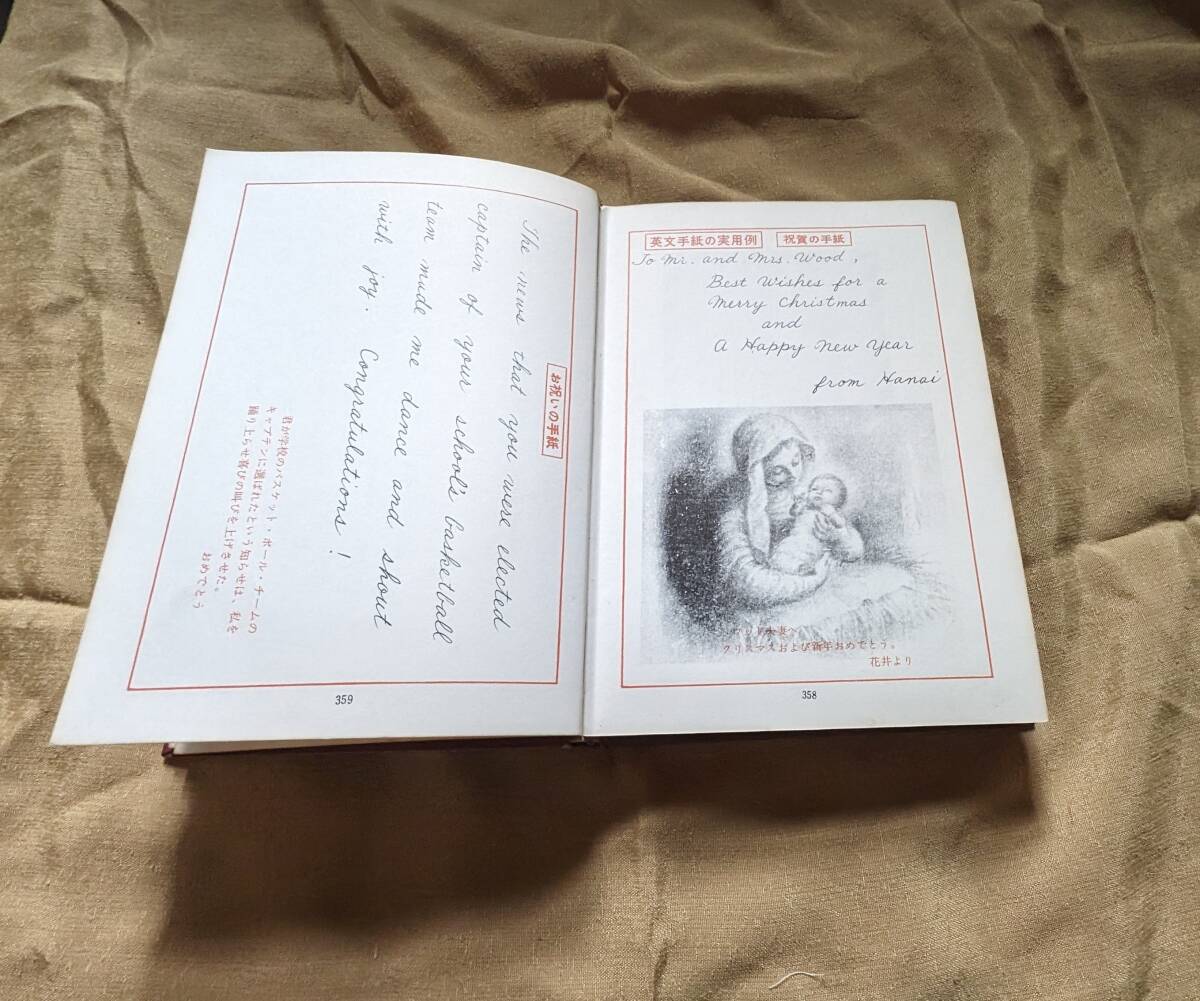 英文手紙の実用例 祝賀の手紙
To Mr. and Mrs. Wood,
Best Wishes for a
Merry Christmas
and
A Happy New Year
from Hanai
ウッド夫妻へ
クリスマスおよび新年おめでとう。
花井より
358
お祝いの手紙
The news that you were elected
captain of your school's basketball
team made me dance and shout
with joy. Congratulations!
君が学校のバスケット・ボール・チームの
キャプテンに選ばれたという知らせは、私を
踊り上らせ喜びの叫びを上げさせた。
おめでとう
359